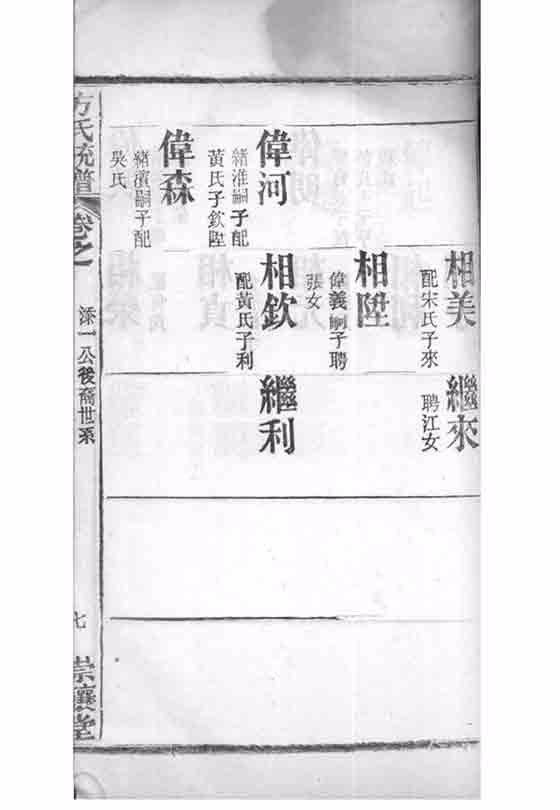 相美
配宋氏子來
繼來
聘江女
相陞
偉義嗣子聘
張女
偉河
緒淮嗣子配
黃氏子欽陞
相欽
配黃氏子利
繼利
偉森
緒濱嗣子配
吳氏
方氏統譜
卷之
添一公後裔世系
七
崇讓堂